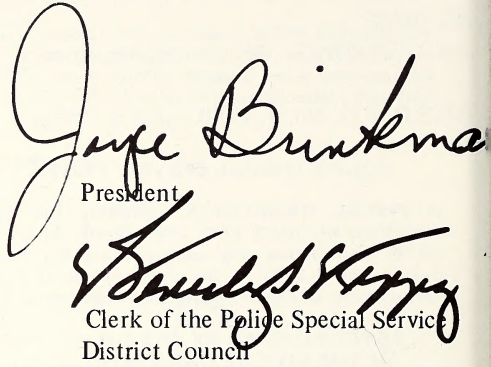 Joyce Brinkma
President
Beverly S. Rippy
Clerk of the Police Special Service
District Council